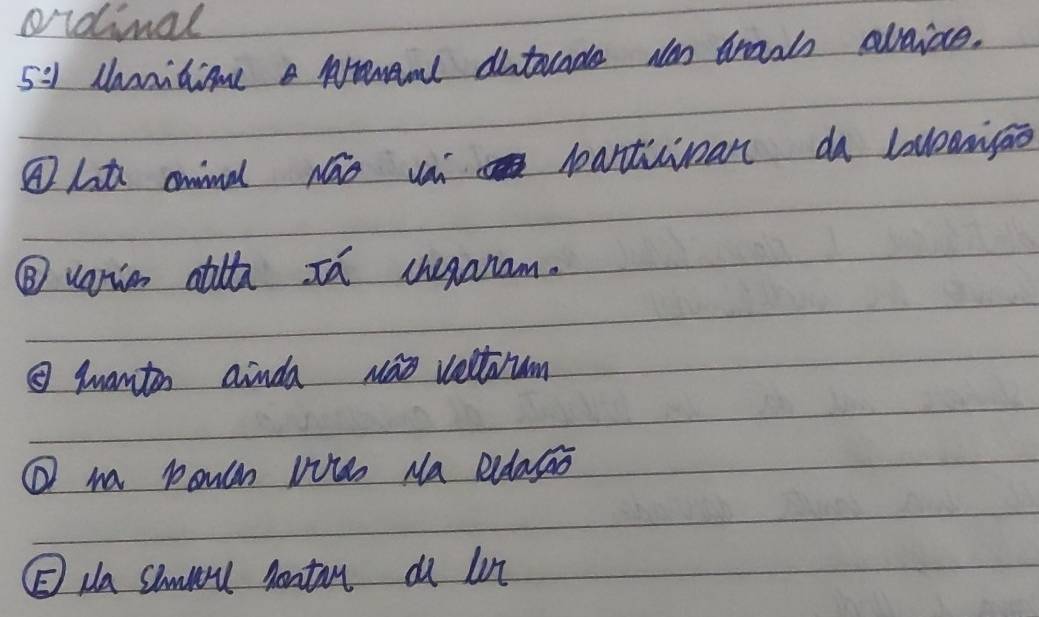 ordinal
5º) Classifique o pronome destacado nas frases abaixo.
A) Este animal não vai participar da exposição
B) varios atleta Já chegaram.
C) Quantos ainda não voltaram
D) ha poucos erros Na Redação
E) Ela sempre gostar de ler